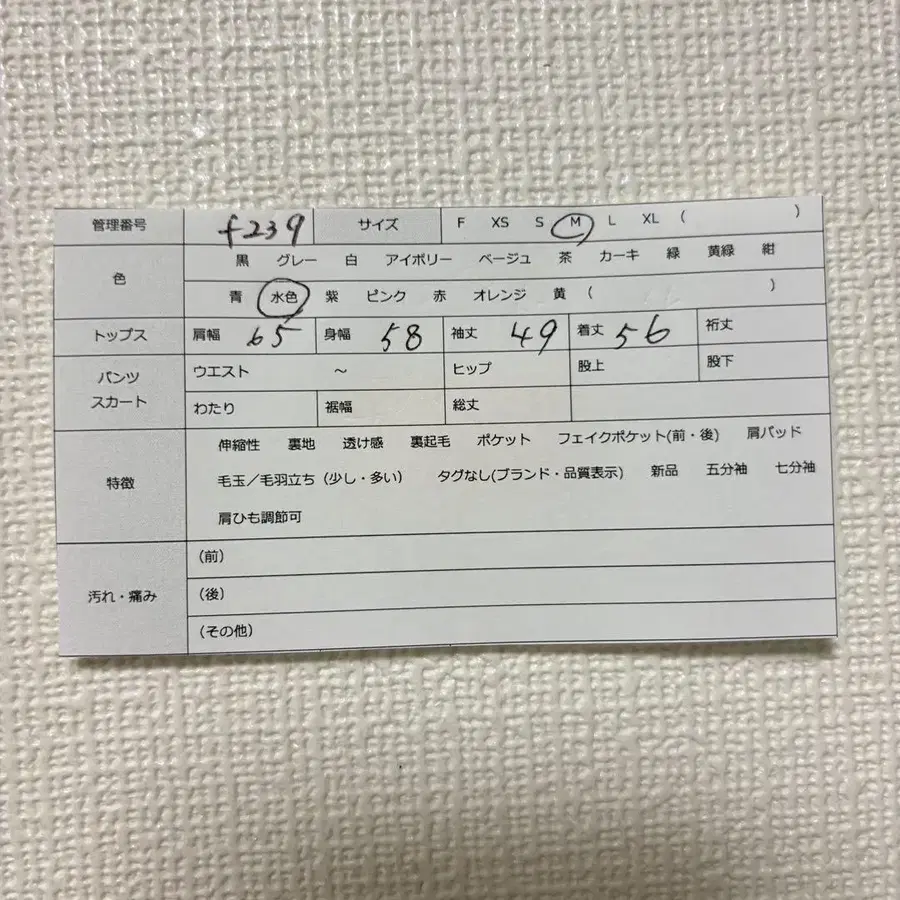 管理番号 f239 サイズ F XS S M L XL ( )
色 黒 グレー 白 アイボリー ベージュ 茶 カーキ 緑 黄緑 紺
青 水色 紫 ピンク 赤 オレンジ 黄 ( )
トップス 肩幅 65 身幅 58 袖丈 49 着丈 56 裄丈
パンツ スカート ウエスト ～ ヒップ 股上 股下
わたり 裾幅 総丈
特徴 伸縮性 裏地 透け感 裏起毛 ポケット フェイクポケット(前・後) 肩パッド
毛玉／毛羽立ち（少し・多い） タグなし(ブランド・品質表示) 新品 五分袖 七分袖
肩ひも調節可
汚れ・痛み （前）
（後）
（その他）